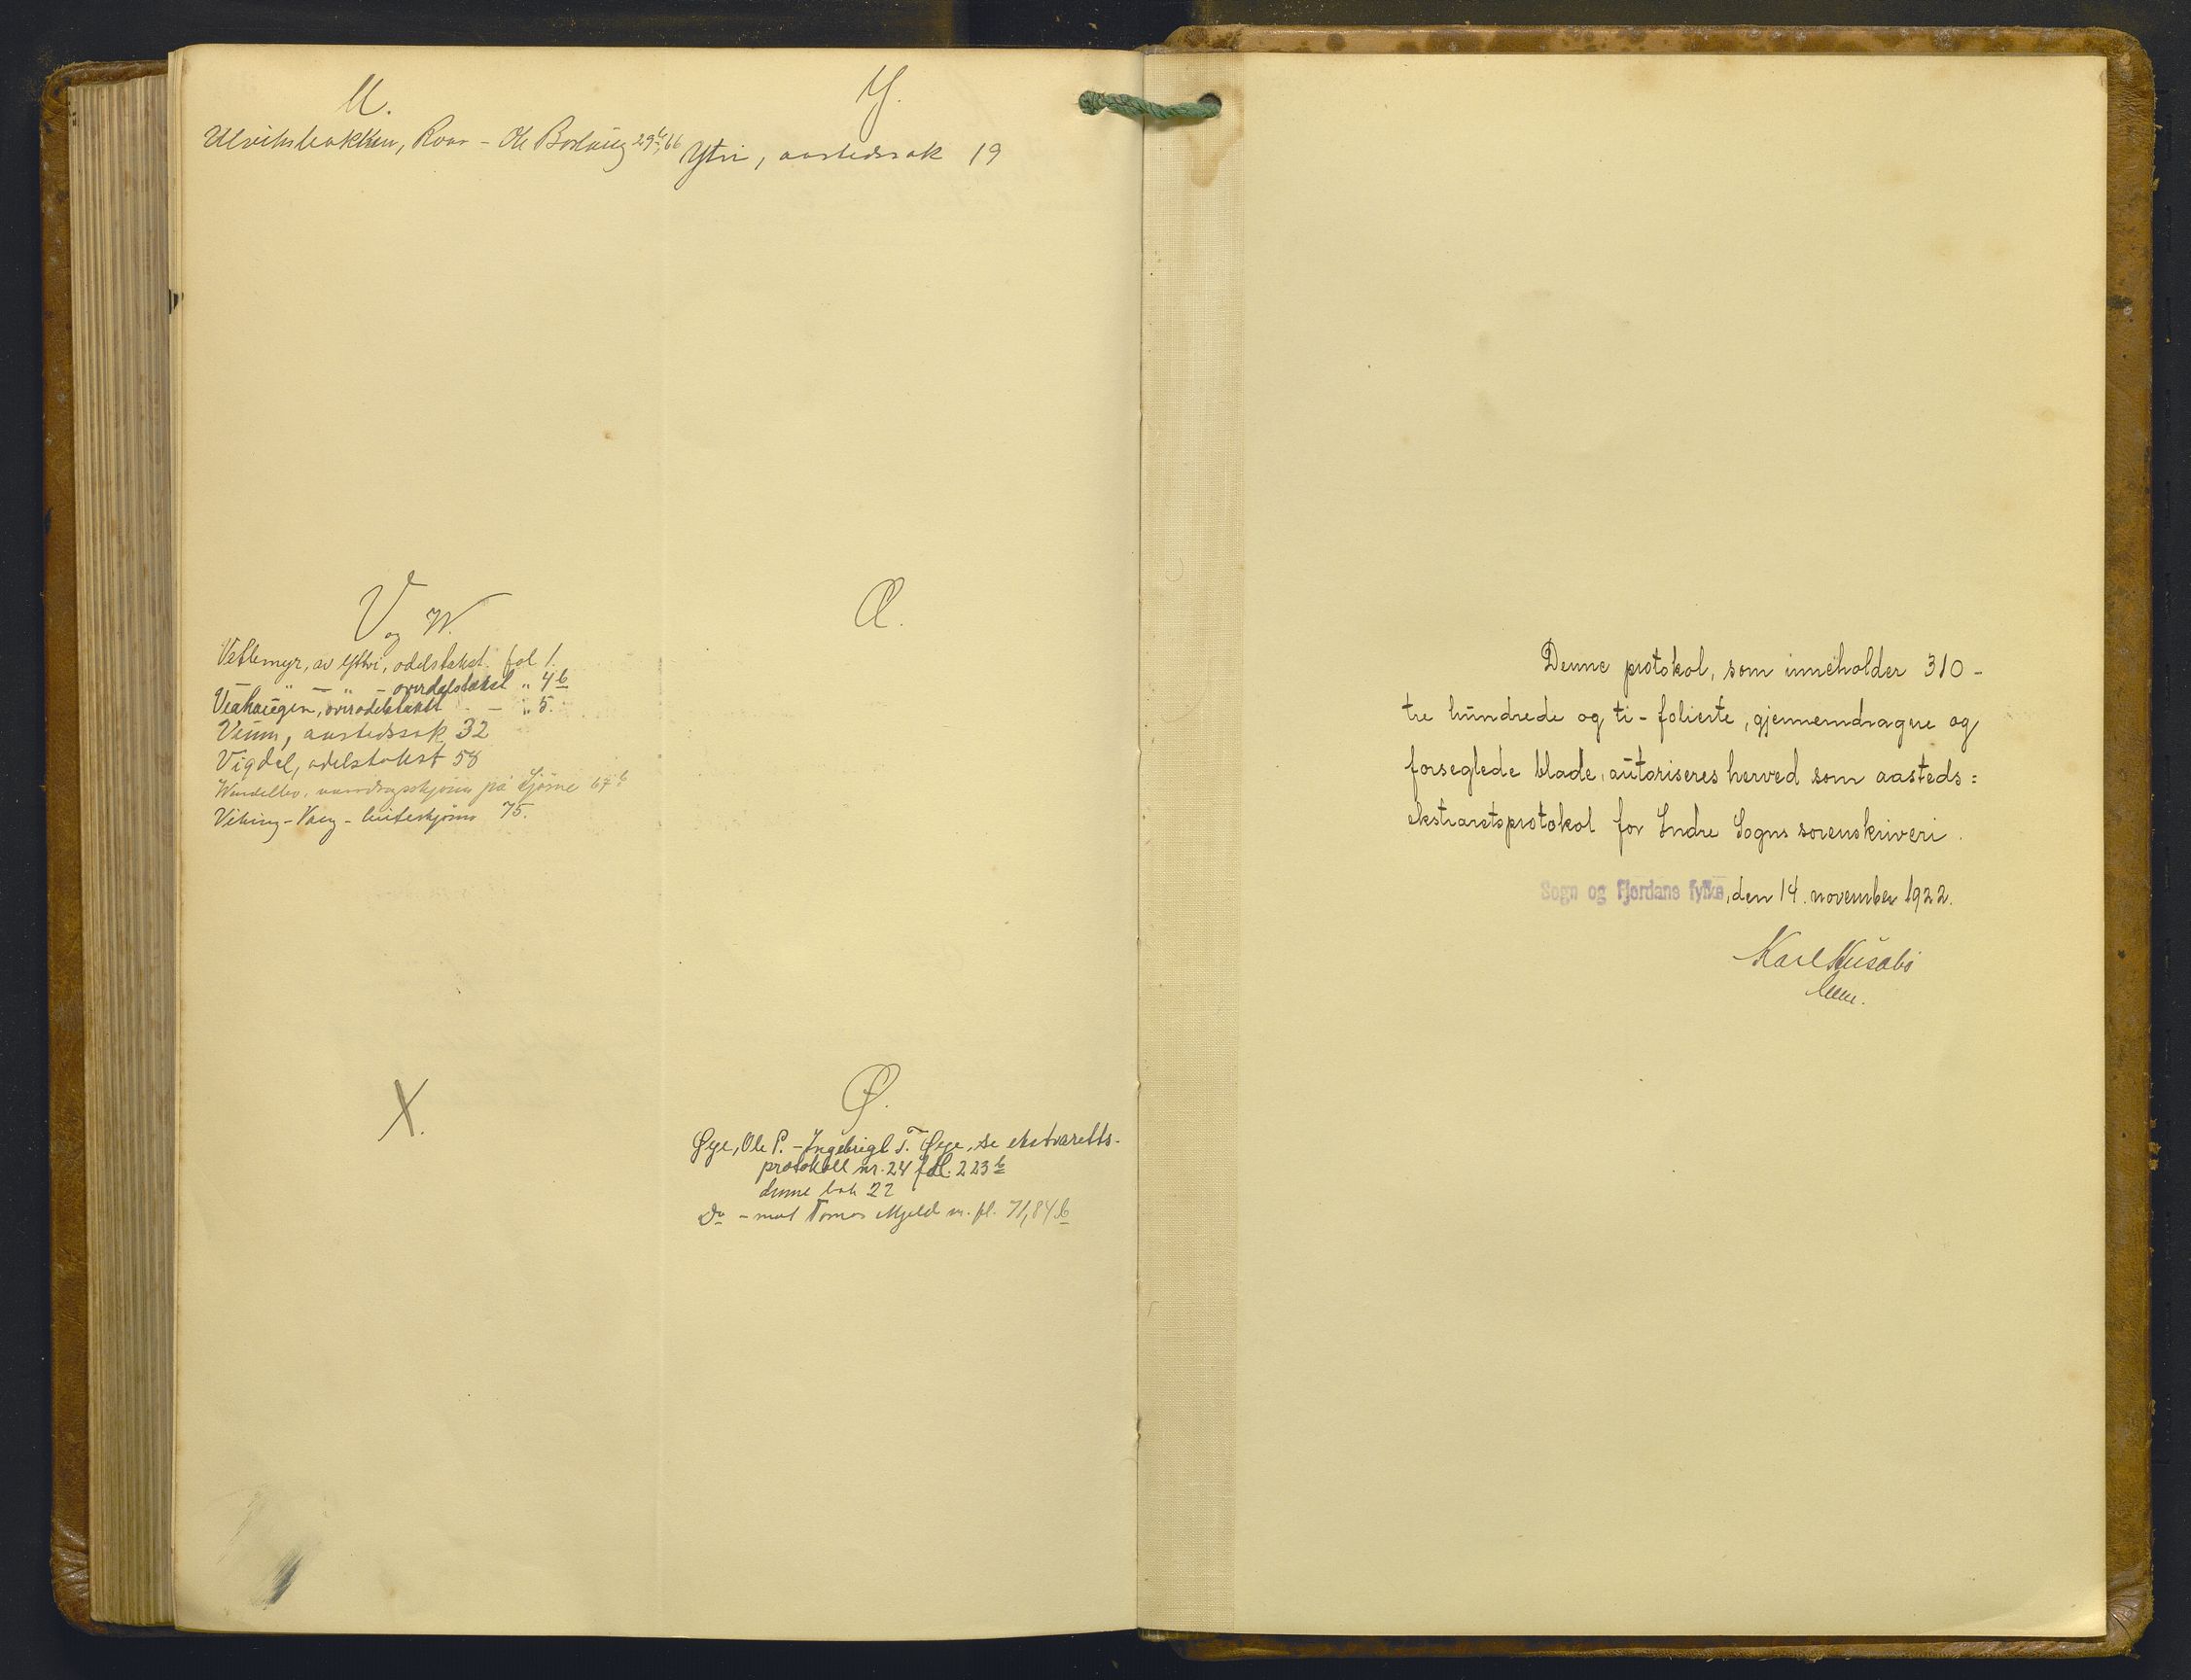 U.
Ulviksbakken, Roar - Ole Borlaug 29b, 66
V og W.
Vetlemyr, av Yttri, odelstakst. fol 1.
- " - " - overodelstakst " 4b
Veahaugen, overodelstakst - " 5.
Veum, aastedssak 32
Vigdal, odelstakst 58
vassdragsskjønn på Gjørne 67b
Viking - Vaag - 75.
X.
Y.
Ytri, aastedssak 19
Æ.
Ø.
Øye, Ole P. - Ingebrigt T. Øye, se ekstraretts-
protokoll nr. 24 fol. 223b
denne bok 22
Do - mot Tomas Mjeld m. fl. 71, 84b
Denne protokol, som inneholder 310 -
tre hundrede og ti - folierte, gjennemdragne og
forseglede blade, autoriseres herved som aasteds=
ekstraretsprotokol for Indre Sogns sorenskriveri.
Sogn og Fjordane fylke, den 14. november 1922.
Karl Husabø